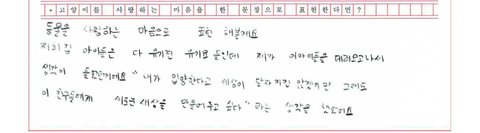 • 고양이를 사랑하는 마음을 한 문장으로 표현한다면?
동물을 사랑하는 마음으로 표현 해볼게요
아이들은 다 유기묘들인데 제가 이아이들을 데려오고나서
생각이 " 내가 입양한다고 세상이 달라지진 않겠지만 그래도
이 친구들에게 새로운 세상을 만들어주고 싶다" 라는 생각을 했어요